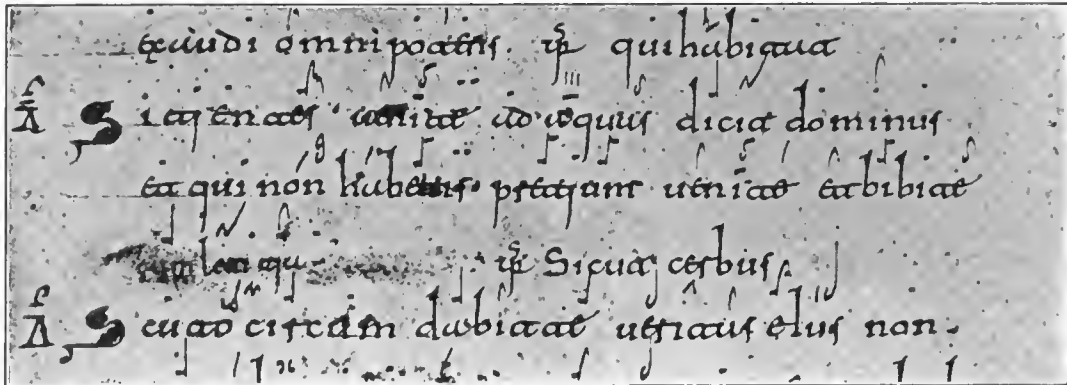 exaudi omnipotens. ps quihabitat
A Sitientes uenite ad aquas dicit dominus
et qui non habetis pretium uenite et bibite
ps Sicut cerbus
A Scuto circumdabit te ueritas eius non